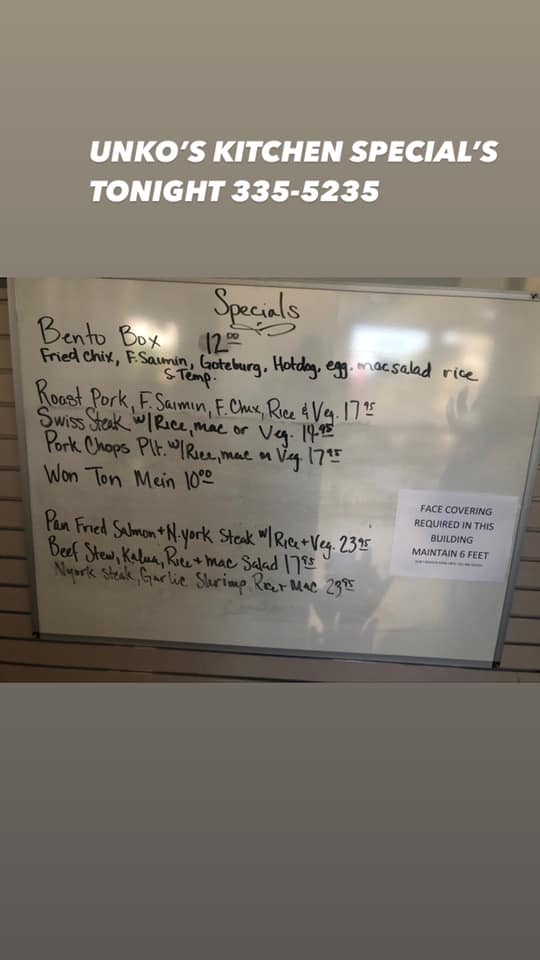 UNKO'S KITCHEN SPECIAL'S
TONIGHT 335-5235
Specials
Bento Box 12.00
Fried Chix, F. Saimin, Goteburg, Hotdog, egg, mac salad rice
S. Temp.
Roast Pork, F. Saimin, F. Chix, Rice & Veg. 17.95
Swiss Steak w/Rice, mac or Veg. 14.95
Pork Chops Plt. w/Rice, mac or Veg 17.95
Won Ton Mein 10.00
Pan Fried Salmon + N.york Steak w/Rice + Veg. 23.95
Beef Stew, Kalua, Rice + mac Salad 17.95
Nyork Steak, Garlic Shrimp, Rice + Mac 23.95
FACE COVERING
REQUIRED IN THIS
BUILDING
MAINTAIN 6 FEET